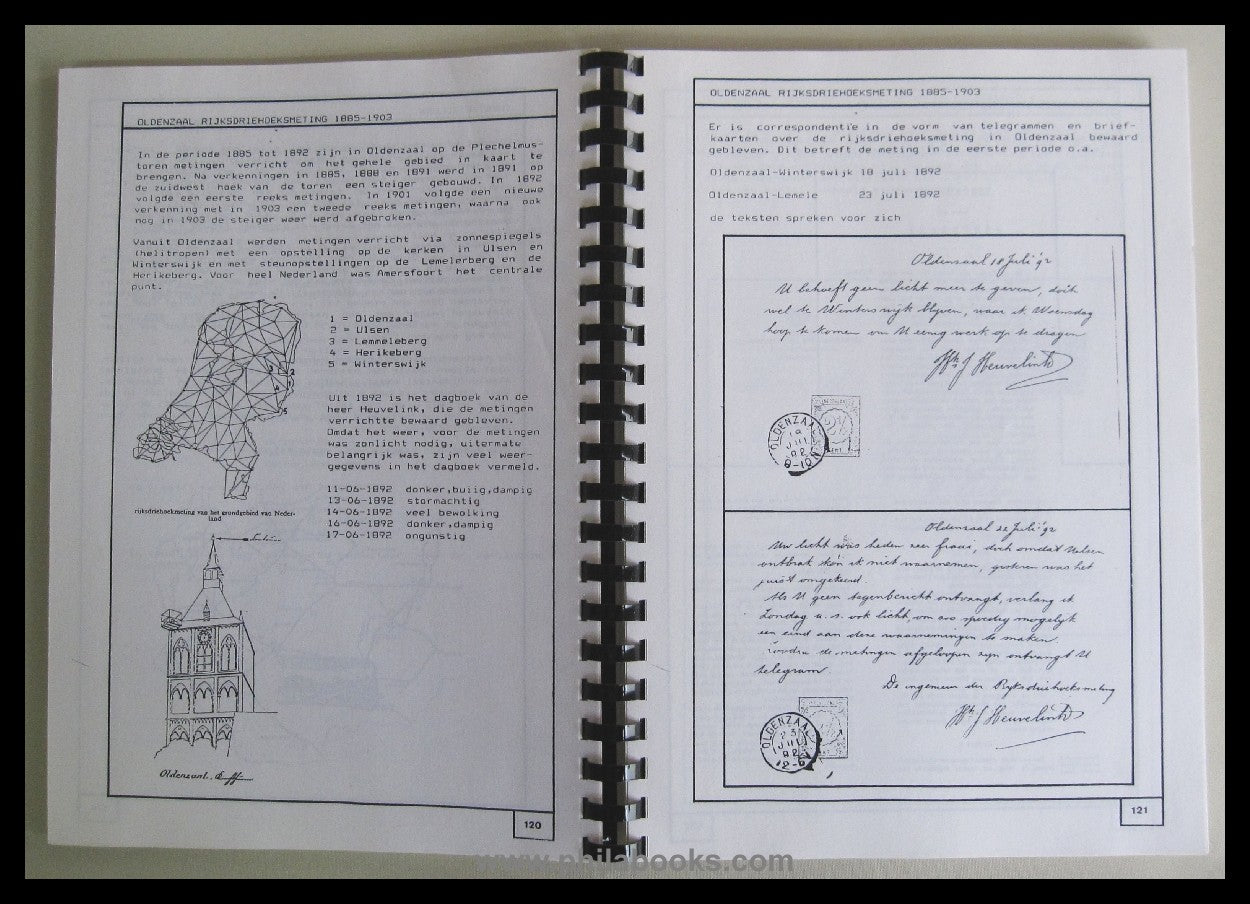 OLDENZAAL RIJKSDRIEHOEKSMETING 1885-1903
In de periode 1885 tot 1892 zijn in Oldenzaal op de Plechelmus-
toren metingen verricht om het gehele gebied in kaart te
brengen. Na verkenningen in 1885, 1888 en 1891 werd in 1891 op
de zuidwest hoek van de toren een steiger gebouwd. In 1892
volgde een eerste reeks metingen. In 1901 volgde een nieuwe
verkenning met in 1903 een tweede reeks metingen, waarna ook
nog in 1903 de steiger weer werd afgebroken.
Vanuit Oldenzaal werden metingen verricht via zonnespiegels
(helitropen) met een opstelling op de kerken in Ulsen en
Winterswijk en met steunopstellingen op de Lemelerberg en de
Herikeberg. Voor heel Nederland was Amersfoort het centrale
punt.
1 = Oldenzaal
2 = Ulsen
3 = Lemmeleberg
4 = Herikeberg
5 = Winterswijk
3
1
2
4
5
Uit 1892 is het dagboek van de
heer Heuvelink, die de metingen
verrichtte bewaard gebleven.
Omdat het weer, voor de metingen
was zonlicht nodig, uitermate
belangrijk was, zijn veel weer-
gegevens in het dagboek vermeld.
11-06-1892 donker,buiig,dampig
13-06-1892 stormachtig
14-06-1892 veel bewolking
16-06-1892 donker,dampig
17-06-1892 ongunstig
rijksdriehoekmeting van het grondgebied van Neder-
land
Oldenzaal.
120
OLDENZAAL RIJKSDRIEHOEKSMETING 1885-1903
Er is correspondentie in de vorm van telegrammen en brief-
kaarten over de rijksdriehoeksmeting in Oldenzaal bewaard
gebleven. Dit betreft de meting in de eerste periode o.a.
Oldenzaal-Winterswijk 18 juli 1892
Oldenzaal-Lemele 23 juli 1892
de teksten spreken voor zich
Oldenzaal 18 Juli '92
U behoeft geen licht meer te geven, doch
wel te Winterswijk blijven, waar ik Woensdag
hoop te komen om U eenig werk op te dragen
Hk J Heuvelink
OLDENZAAL
19
JUL
92
8-10V
2½
Oldenzaal 22 Juli '92
Uw licht was heden zeer fraai, doch omdat Uelsen
ontbrak kon ik niet waarnemen, gisteren was het
juist omgekeerd.
Als U geen tegenbericht ontvangt, verlang ik
Zondag a. s. ook licht, om zoo spoedig mogelijk
een eind aan deze waarnemingen te maken.
Zoodra de metingen afgeloopen zijn ontvangt U
telegram.
De ingenieur der Rijksdriehoeksmeting
Hk J Heuvelink
OLDENZAAL
23
JUL
92
121
www.philabooks.com